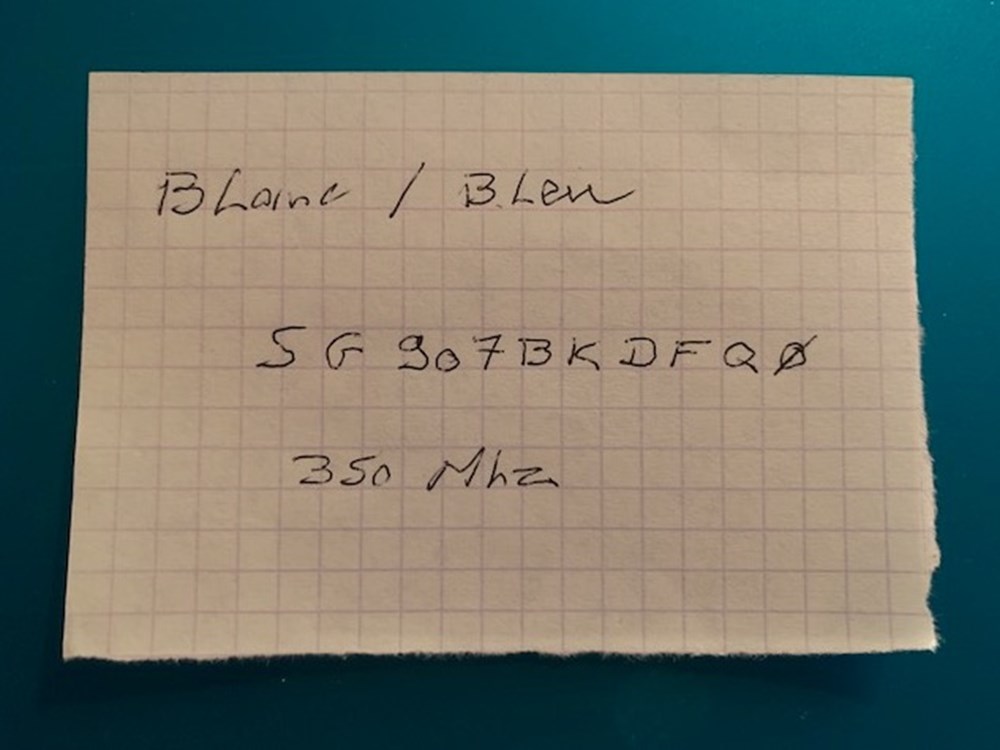 Blanc / Bleu
SG 907BKDFQØ
350 Mhz